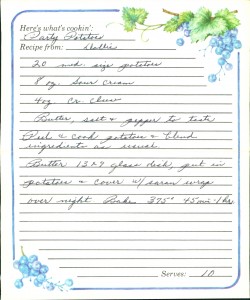 Here's what's cookin':
Party Potatoes
Recipe from: Hallie
20 med. size potatoes
8 oz. Sour Cream
4 oz. Cr. Cheese
Butter, salt & pepper to taste
Peel & Cook potatoes & blend
ingredients as usual
Butter 13x9 glass dish, put in
potatoes & cover w/ saran wrap
over night Bake 375° 45 min - 1 hr
Serves: 10